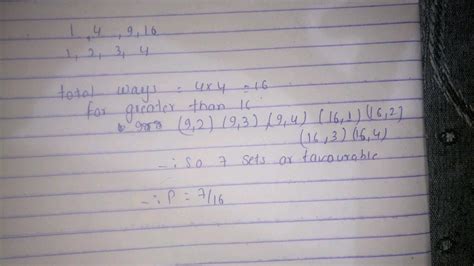 1, 4, 9, 16
1, 2, 3, 4
total ways = 4x4 = 16
for greater than 16
(9,2) (9,3) (9,4) (16,1) (16,2)
(16,3) (16,4)
∴ So 7 sets or favourable
∴ P = 7/16